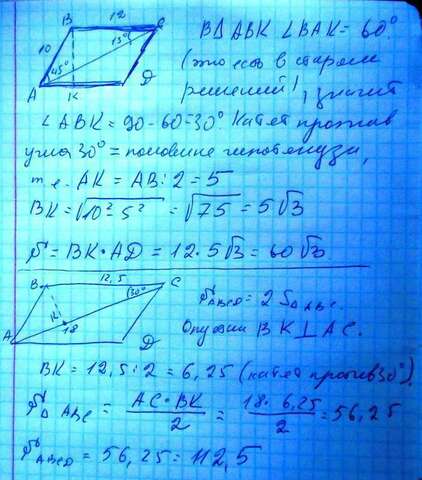 B 12 C
10 15° 45°
A K D
В Δ ABK ∠BAK = 60°
(это есть в старом
решении), значит
∠ABK = 90-60=30°. Катет против
угла 30° = половине гипотенузы,
т.е. AK = AB:2 = 5
BK = √10²-5² = √75 = 5√3
S = BK·AD = 12·5√3 = 60√3
B 12,5 C
30°
K 18
A D
S ABCD = 2 S Δ ABC.
Опустим BK⊥AC.
BK = 12,5:2 = 6,25 (катет против 30°).
S Δ ABC = AC·BK / 2 = 18·6,25 / 2 = 56,25
S ABCD = 56,25 = 112,5